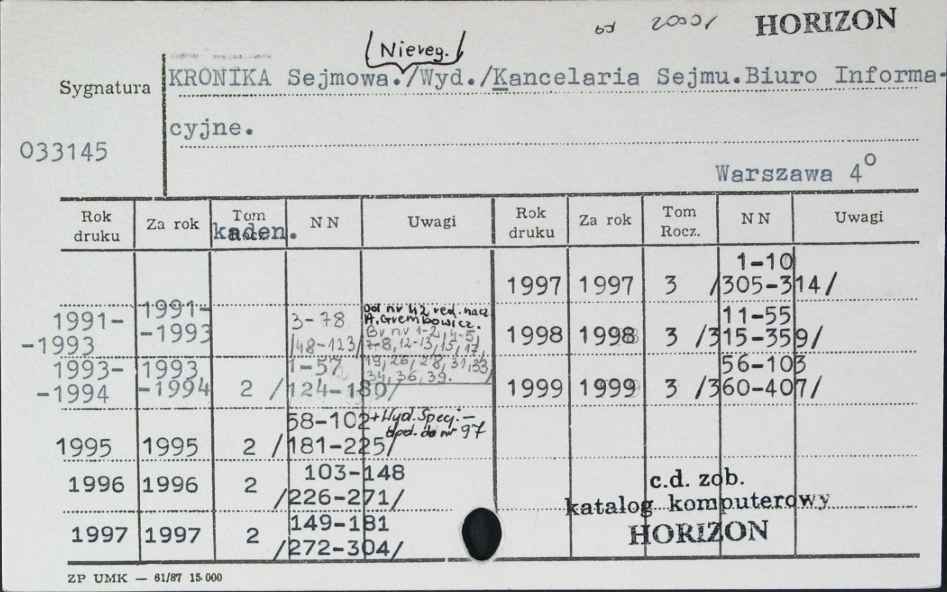 od 2000r HORIZON
(Niereg.)
Sygnatura KRONIKA Sejmowa./Wyd./Kancelaria Sejmu.Biuro Informa-
cyjne.
033145
Warszawa 4°
Rok druku Za rok Tom kaden. NN Uwagi Rok druku Za rok Tom Rocz. NN Uwagi
1997 1997 3 1-10 /305-314/
1991-1993 1991-1993 3-78 /48-123/ Od nr 42 red. nacz. A.Grembowicz. Br nr 1-2, 4-5, 7-8, 12-13, 15, 17,
1998 1998 3 11-55 /315-359/
1993-1994 1993-1994 2 1-57 /124-180/ 19, 26, 28, 31, 33, 34, 36, 39.
1999 1999 3 56-103 /360-407/
1995 1995 2 58-102 /181-225/ + Wyd. Specj. — dod. do nr 97
1996 1996 2 103-148 /226-271/
c.d. zob.
katalog komputerowy
HORIZON
1997 1997 2 149-181 /272-304/
ZP UMK — 61/87 15.000